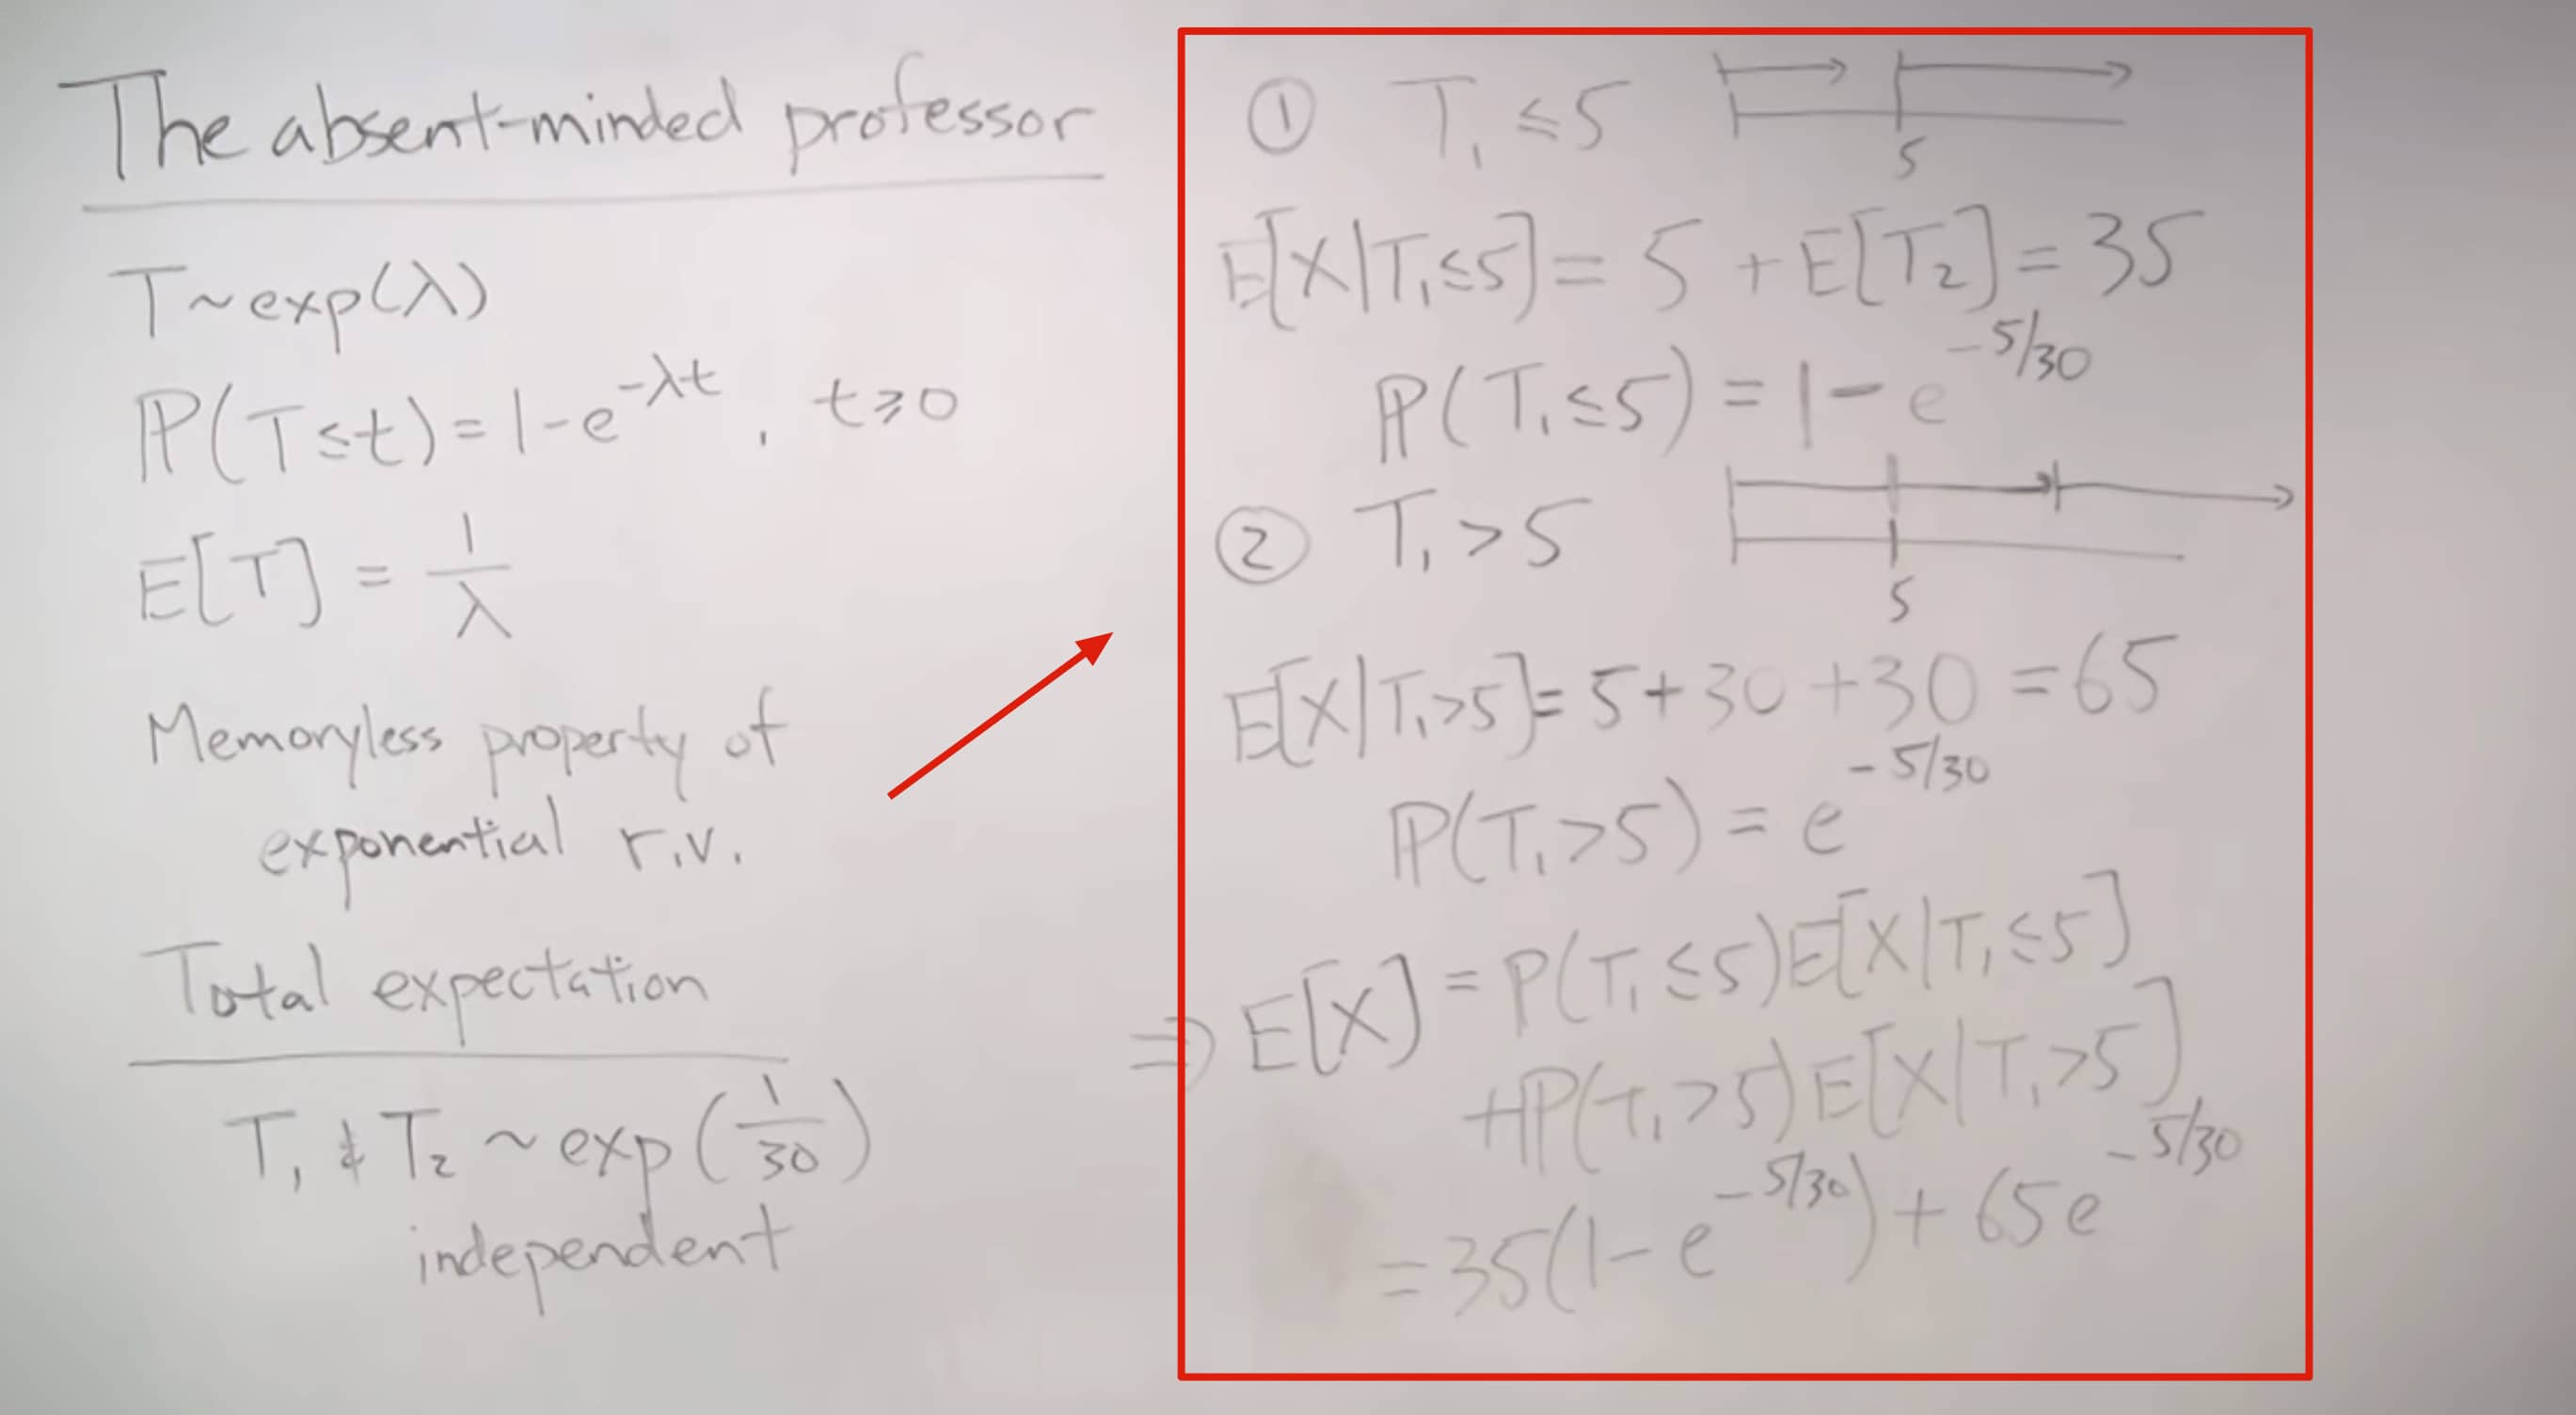 The absent-minded professor
T~exp(λ)
ℙ(T≤t)=1-e^{-λt}, t≥0
E[T] = 1/λ
Memoryless property of
exponential r.v.
Total expectation
T₁ & T₂ ~ exp(1/30)
independent
① T₁ ≤ 5
5
E[X|T₁≤5] = 5 + E[T₂] = 35
ℙ(T₁≤5) = 1-e^{-5/30}
② T₁ > 5
5
E[X|T₁>5] = 5+30+30 = 65
ℙ(T₁>5) = e^{-5/30}
⇒ E[X] = P(T₁≤5)E[X|T₁≤5]
+ℙ(T₁>5)E[X|T₁>5]
= 35(1-e^{-5/30}) + 65e^{-5/30}